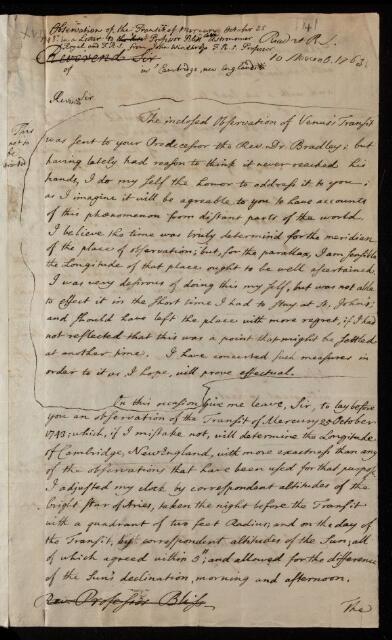 Observation of the Transit of Mercury October 25
1743: in a Letter to Professor Bliss, Astronomer
Royal and F.R.S. from John Winthrop F.R.S. Professor
Reverend Sir
of
in Cambridge, New England
Read at R.S.
10 1763
Rev.d Sir
This
not to
be
printed
The inclosed Observation of Venus's Transit
was sent to your Predecessor the Rev. Dr. Bradley; but
having lately had reason to think it never reached his
hands, I do my self the honor to address it to you;
as I imagine it will be agreable to you to have accounts
of this phænomenon from distant parts of the world.
I believe the time was truly determin'd for the meridian
of the place of observation; but, for the parallax, I am sensible
the Longitude of that place ought to be well ascertained.
I was very desirous of doing this my self, but was not able
to effect it in the short time I had to stay at St. John's;
and should have left the place with more regret, if I had
not reflected that this was a point that might be settled
at another time. I have concerted such measures in
order to it as I hope, will prove effectual.
On this occasion give me leave, Sir, to lay before
you an observation of the Transit of Mercury 25 October
1743; which, if I mistake not, will determine the Longitude
of Cambridge, New England, with more exactness than any
of the observations that have been used for that purpose.
I adjusted my clock by correspondent altitudes of the
bright star of Aries, taken the night before the Transit
with a quadrant of two feet Radius; and on the day of
the Transit, by correspondent altitudes of the Sun; all
of which agreed within 3"; and allowed for the difference
of the Sun's declination, morning and afternoon.
Rev. Professor Bliss
The